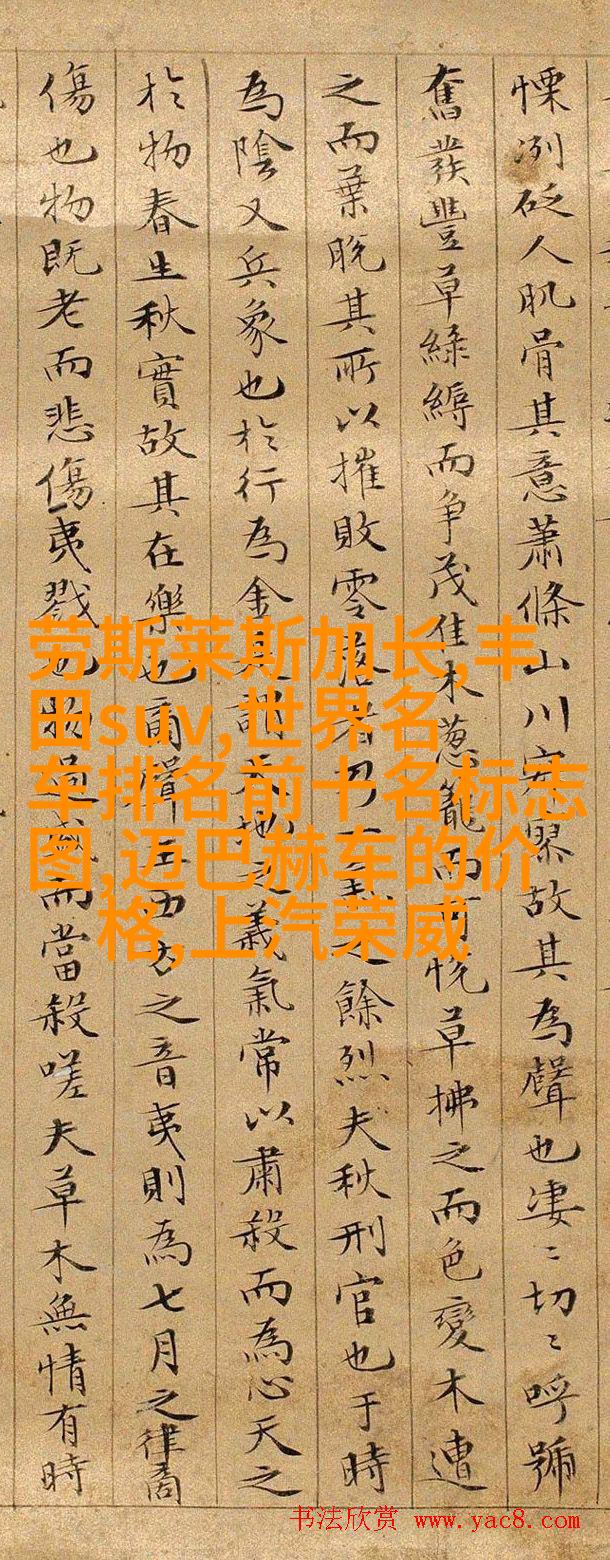 慄冽砭人肌骨其意蕭條山川寂寥故其為聲也淒〻切〻呼號
奮發豐草綠縟而争茂佳木葱籠而可悅草拂之而色變木遭
之而葉脫其所以摧敗零落者乃一氣之餘烈夫秋刑官也于時
為陰又兵象也於行為金是謂天地之義氣常以肅殺而為心天之
於物春生秋實故其在樂也商聲主西方之音夷則為七月之律商
傷也物既老而悲傷夷戮也物過盛而當殺嗟夫草木無情有時
劳斯莱斯加长,丰
田suv,世界名
车排名前十名标志
图,迈巴赫车的价
格,上汽荣威
书法欣赏 www.yac8.com